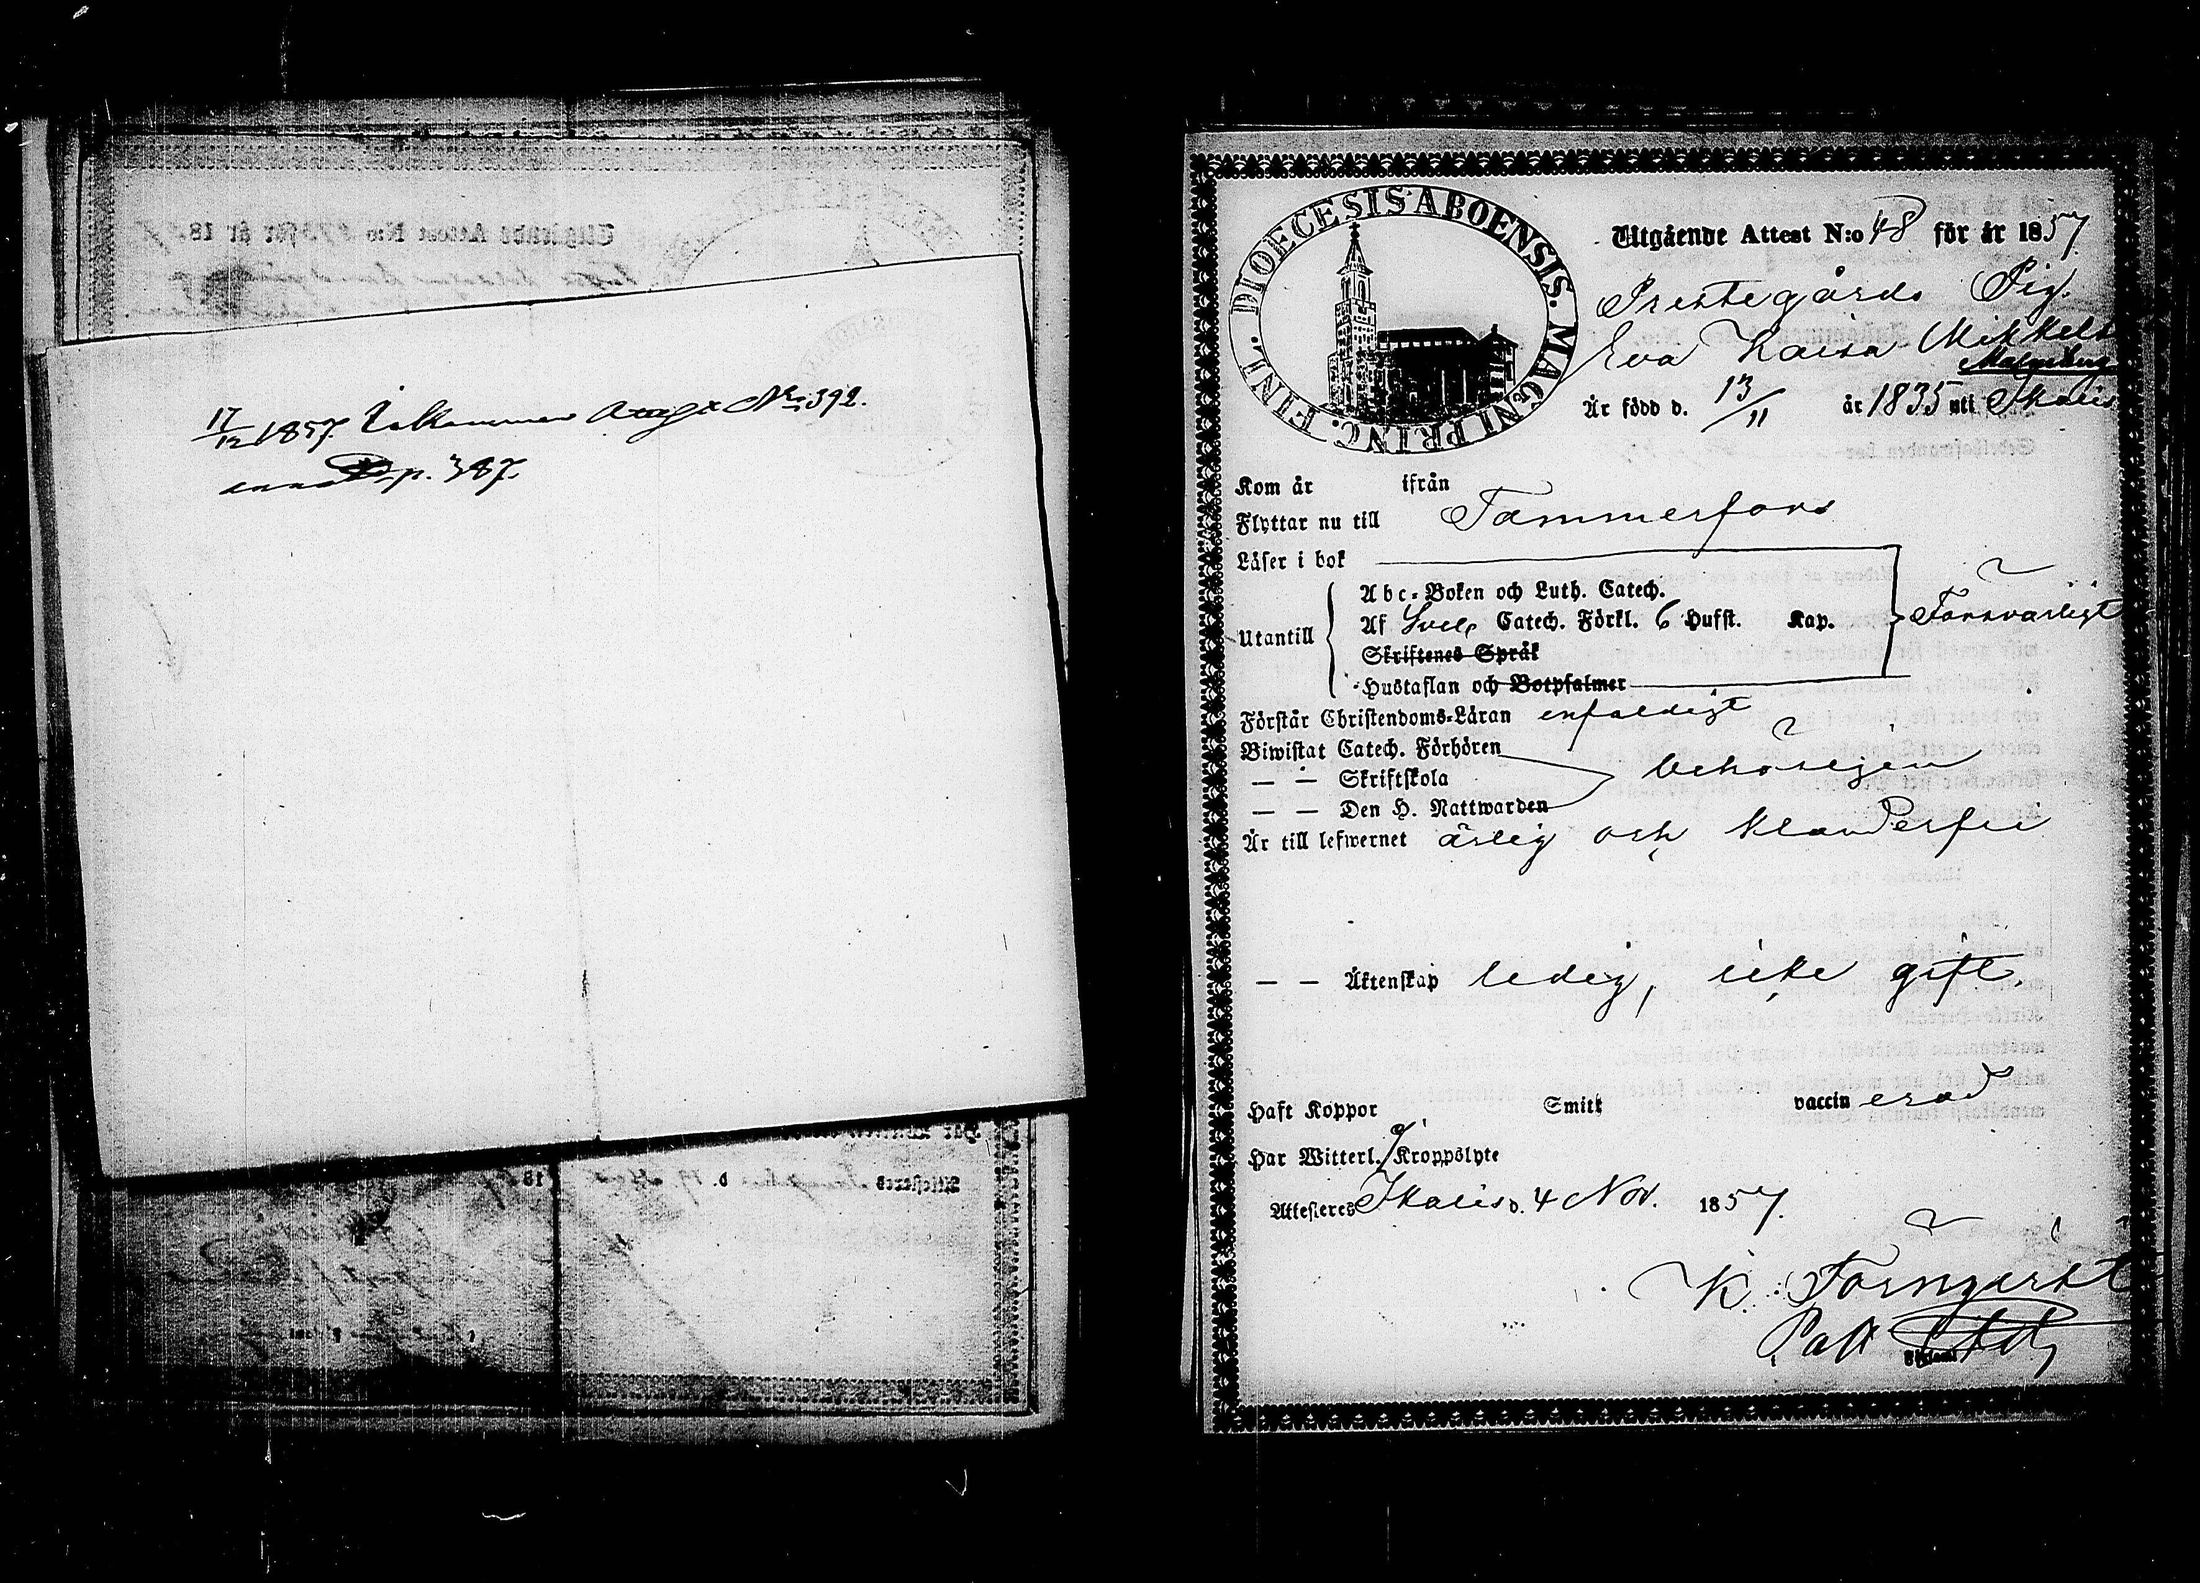 17/12 1857. Inkommen Attest No 392.
p. 387.
DIOECESIS ABOENSIS. MAGNI PRINC. FINL.
Utgående Attest N:o 48 för år 1857
Prestegårds Pig.
Eva Kaisa Mikkels
Malmberg
Är född d. 13/11 år 1835 uti Ikalis
Kom år ifrån
Flyttar nu till Tammerfors
Läser i bok
Abc-Boken och Luth. Catech.
Utantill Af Svel. Catech. Förkl. 6 Hufst. Kap. Försvarligt
Skriftenes Språk
Hustaflan och Botpsalmer
Förstår Christendoms-Läran enfaldigt
Biwistat Catech. Förhören
— — Skriftskola behörigen
— — Den H. Nattwarden
Är till lefwernet ärlig och klanderfri
— — Äktenskap ledig, icke gift.
Haft Koppor Smitt vaccin erad
Har Witterl. Kroppslyte
Attesteres Ikalis d. 4 Nov. 1857.
K. Törnqvist